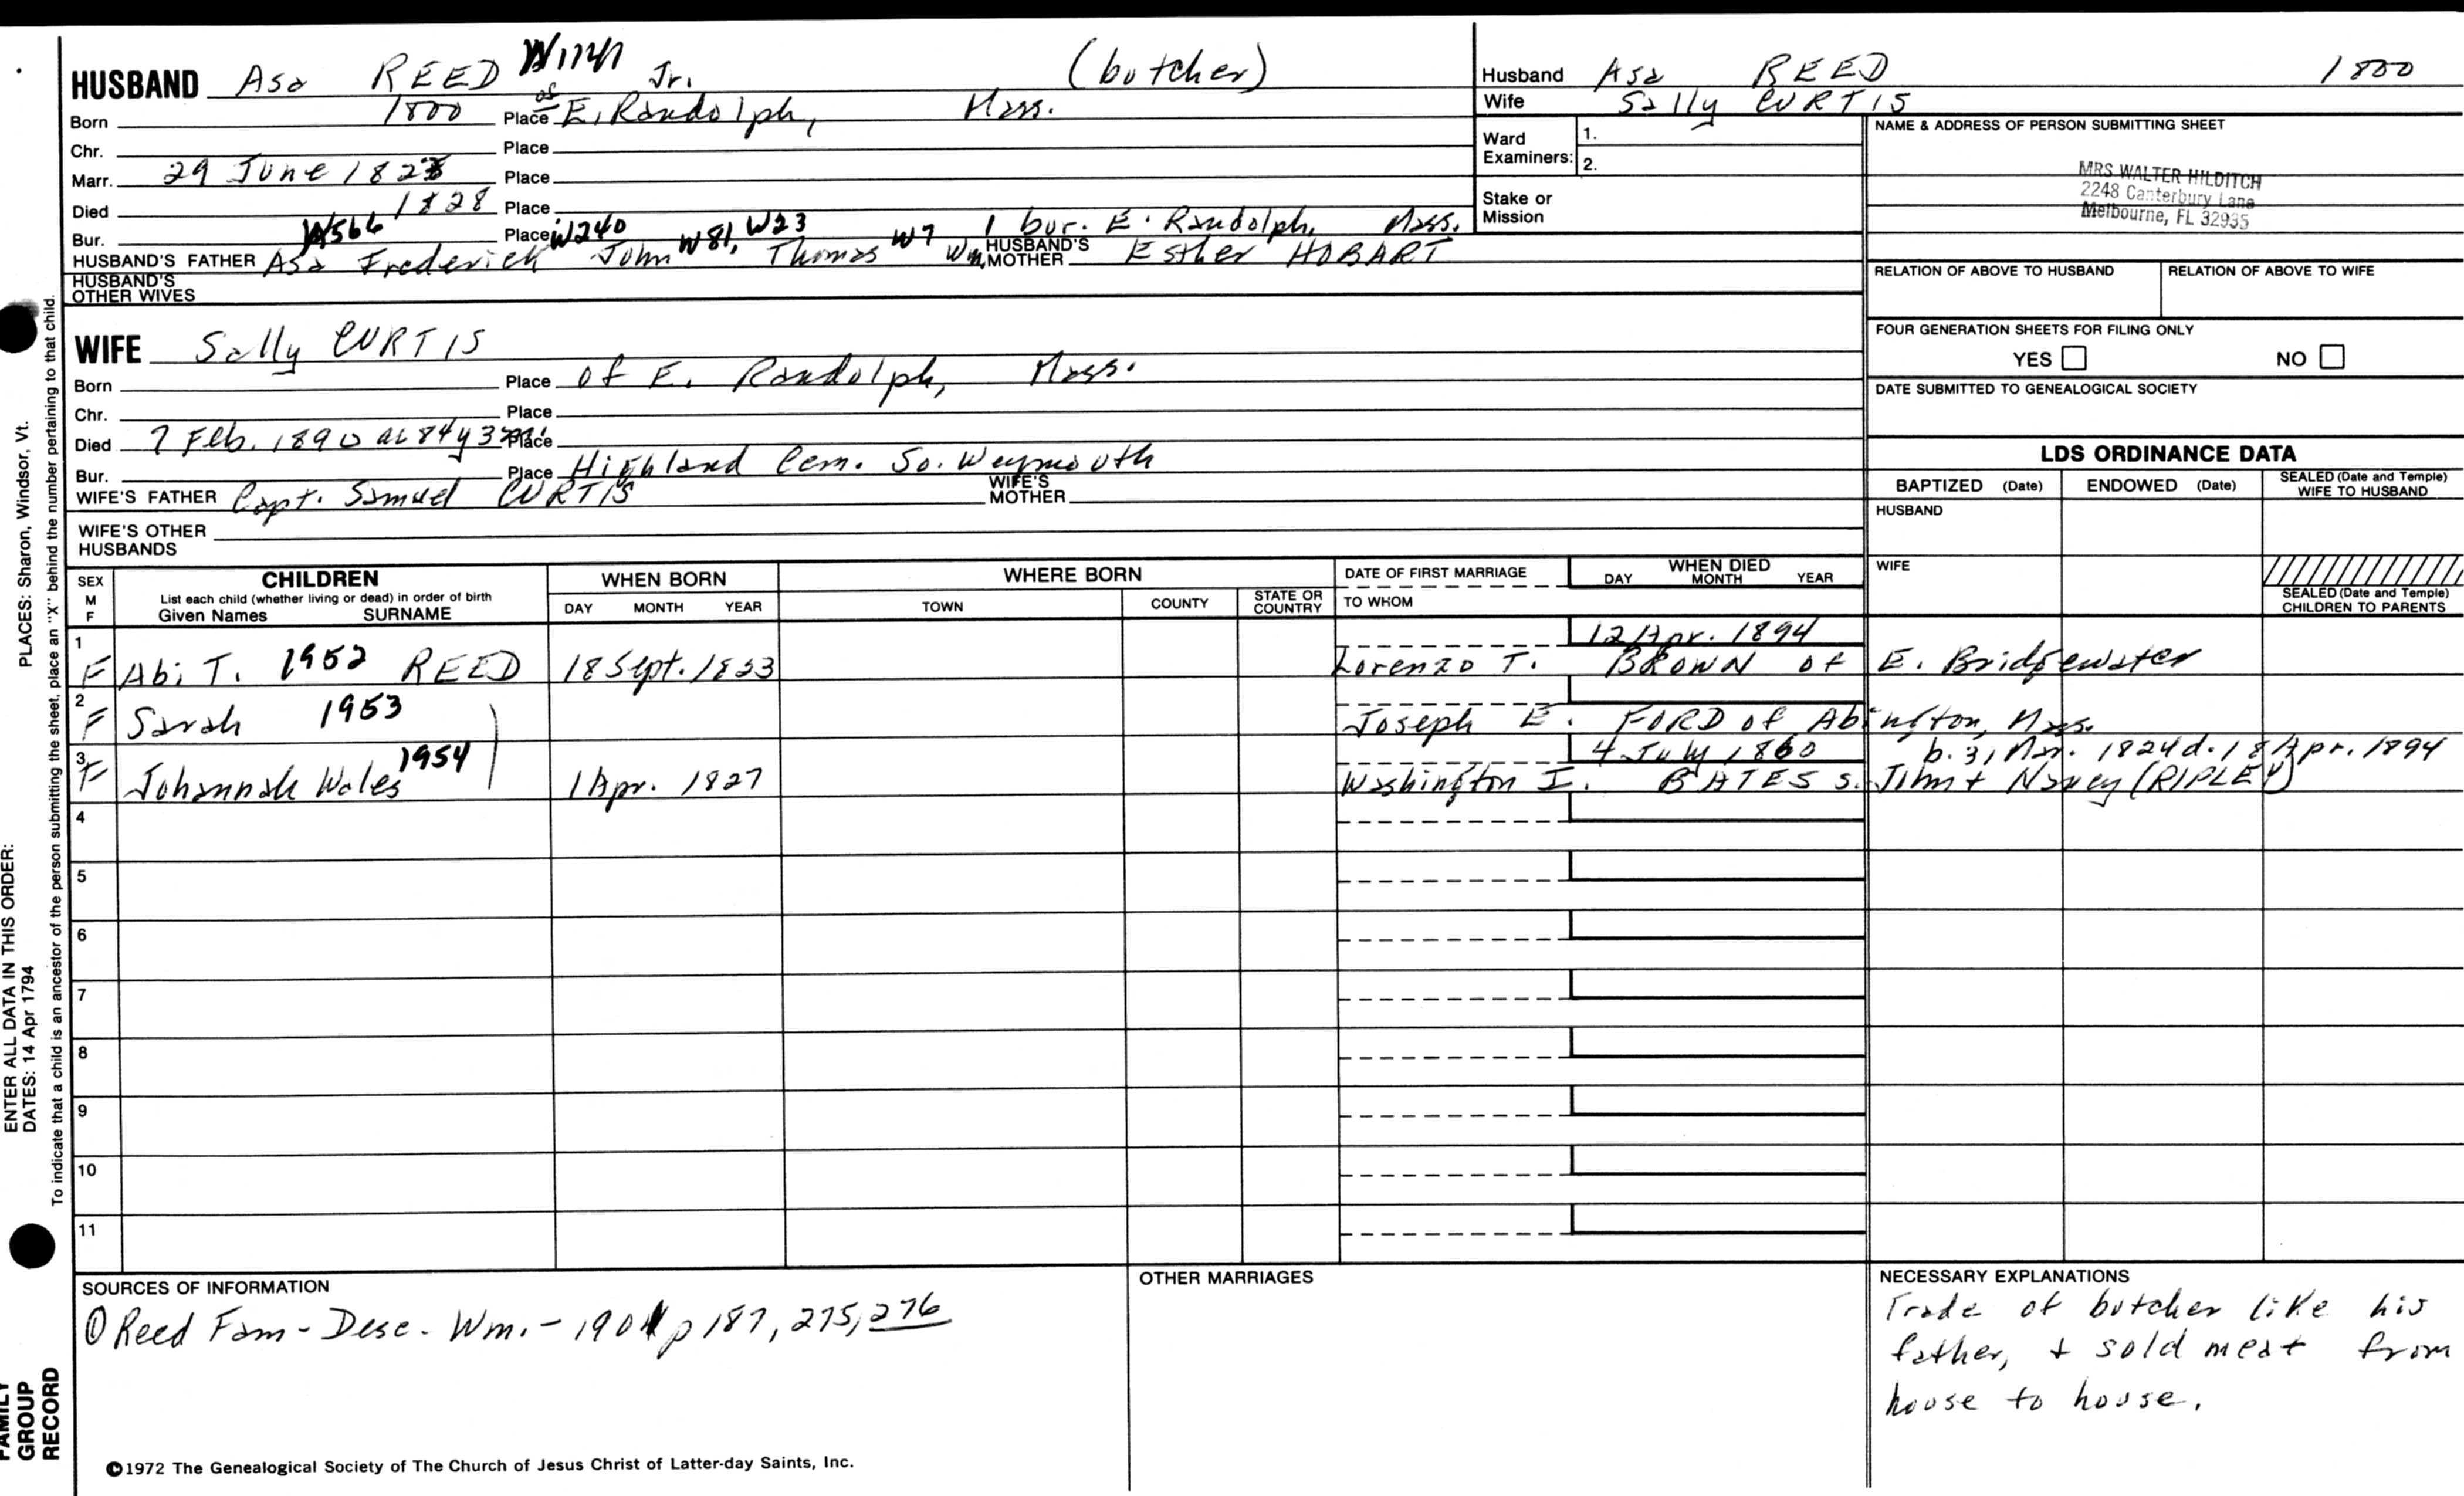 HUSBAND Asa REED W1141 Jr. (butcher)
Born 1800 Place of E. Randolph, Mass.
Chr. Place
Marr. 29 June 182 Place
Died 1828 Place
Bur. W566 Place W240 W81, W23 W7 1 bur. E. Randolph, Mass.
HUSBAND'S FATHER Asa Frederick John Thomas Wm. HUSBAND'S MOTHER Esther HOBART
HUSBAND'S OTHER WIVES
WIFE Sally CURTIS
Born Place of E. Randolph, Mass.
Chr. Place
Died 7 Feb. 1890 ae 84y 3m Place
Bur. Place Highland Cem. So. Weymouth
WIFE'S FATHER Capt. Samuel CURTIS WIFE'S MOTHER
WIFE'S OTHER HUSBANDS
Husband Asa REED 1800
Wife Sally CURTIS
Ward Examiners: 1.
2.
Stake or Mission
NAME & ADDRESS OF PERSON SUBMITTING SHEET
MRS WALTER HILDITCH
2248 Canterbury Lane
Melbourne, FL 32935
RELATION OF ABOVE TO HUSBAND RELATION OF ABOVE TO WIFE
FOUR GENERATION SHEETS FOR FILING ONLY
YES NO
DATE SUBMITTED TO GENEALOGICAL SOCIETY
LDS ORDINANCE DATA
BAPTIZED (Date) ENDOWED (Date) SEALED (Date and Temple) WIFE TO HUSBAND
HUSBAND
WIFE
SEALED (Date and Temple) CHILDREN TO PARENTS
SEX M F CHILDREN WHEN BORN WHERE BORN DATE OF FIRST MARRIAGE WHEN DIED
List each child (whether living or dead) in order of birth
Given Names SURNAME DAY MONTH YEAR TOWN COUNTY STATE OR COUNTRY TO WHOM DAY MONTH YEAR
1 12 Apr. 1894
F Abi T. 1952 REED 18 Sept. 1823 Lorenzo T. BROWN of E. Bridgewater
2
F Sarah 1953 Joseph E. FORD of Abington, Mass.
3 4 July 1860 b. 31 Mar. 1824 d. 18 Apr. 1894
F Johannah Wales 1954 1 Apr. 1827 Washington I. BATES s. John + Nancy (RIPLEY)
4
5
6
7
8
9
10
11
SOURCES OF INFORMATION
① Reed Fam - Desc. Wm. - 1901 p 187, 275, 276
OTHER MARRIAGES
NECESSARY EXPLANATIONS
Trade of butcher like his
father, + sold meat from
house to house.
©1972 The Genealogical Society of The Church of Jesus Christ of Latter-day Saints, Inc.
FAMILY GROUP RECORD
ENTER ALL DATA IN THIS ORDER:
DATES: 14 Apr 1794
PLACES: Sharon, Windsor, Vt.
To indicate that a child is an ancestor of the person submitting the sheet, place an "X" behind the number pertaining to that child.